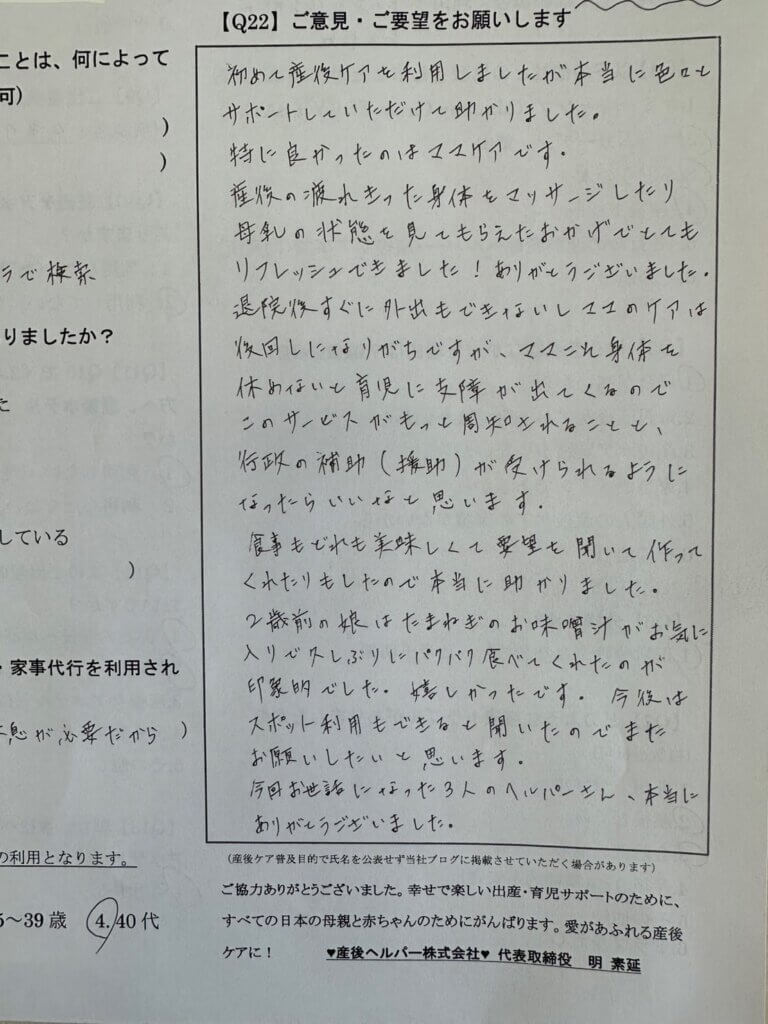 【Q22】ご意見・ご要望をお願いします
ことは、何によって
可)
)
)
ラで検索
りましたか?
た
している
)
・家事代行を利用され
息が必要だから )
の利用となります。
5~39歳 4.40代
初めて産後ケアを利用しましたが本当に色々と
サポートしていただけて助かりました。
特に良かったのはママケアです。
産後の疲れきった身体をマッサージしたり
母乳の状態を見てもらえたおかげでとても
リフレッシュできました!ありがとうございました。
退院後すぐに外出もできないしママのケアは
後回しになりがちですが、ママこそ身体を
休めないと育児に支障が出てくるので
このサービスがもっと周知されることと、
行政の補助(援助)が受けられるように
なったらいいなと思います。
食事もどれも美味しくて要望を聞いて作って
くれたりもしたので本当に助かりました。
2歳前の娘はたまねぎのお味噌汁がお気に
入りで久しぶりにパクパク食べてくれたのが
印象的でした。嬉しかったです。今後は
スポット利用もできると聞いたのでまた
お願いしたいと思います。
今回お世話になった3人のヘルパーさん、本当に
ありがとうございました。
(産後ケア普及目的で氏名を公表せず当社ブログに掲載させていただく場合があります)
ご協力ありがとうございました。幸せで楽しい出産・育児サポートのために、
すべての日本の母親と赤ちゃんのためにがんばります。愛があふれる産後
ケアに! ♥産後ヘルパー株式会社♥ 代表取締役 明 素延